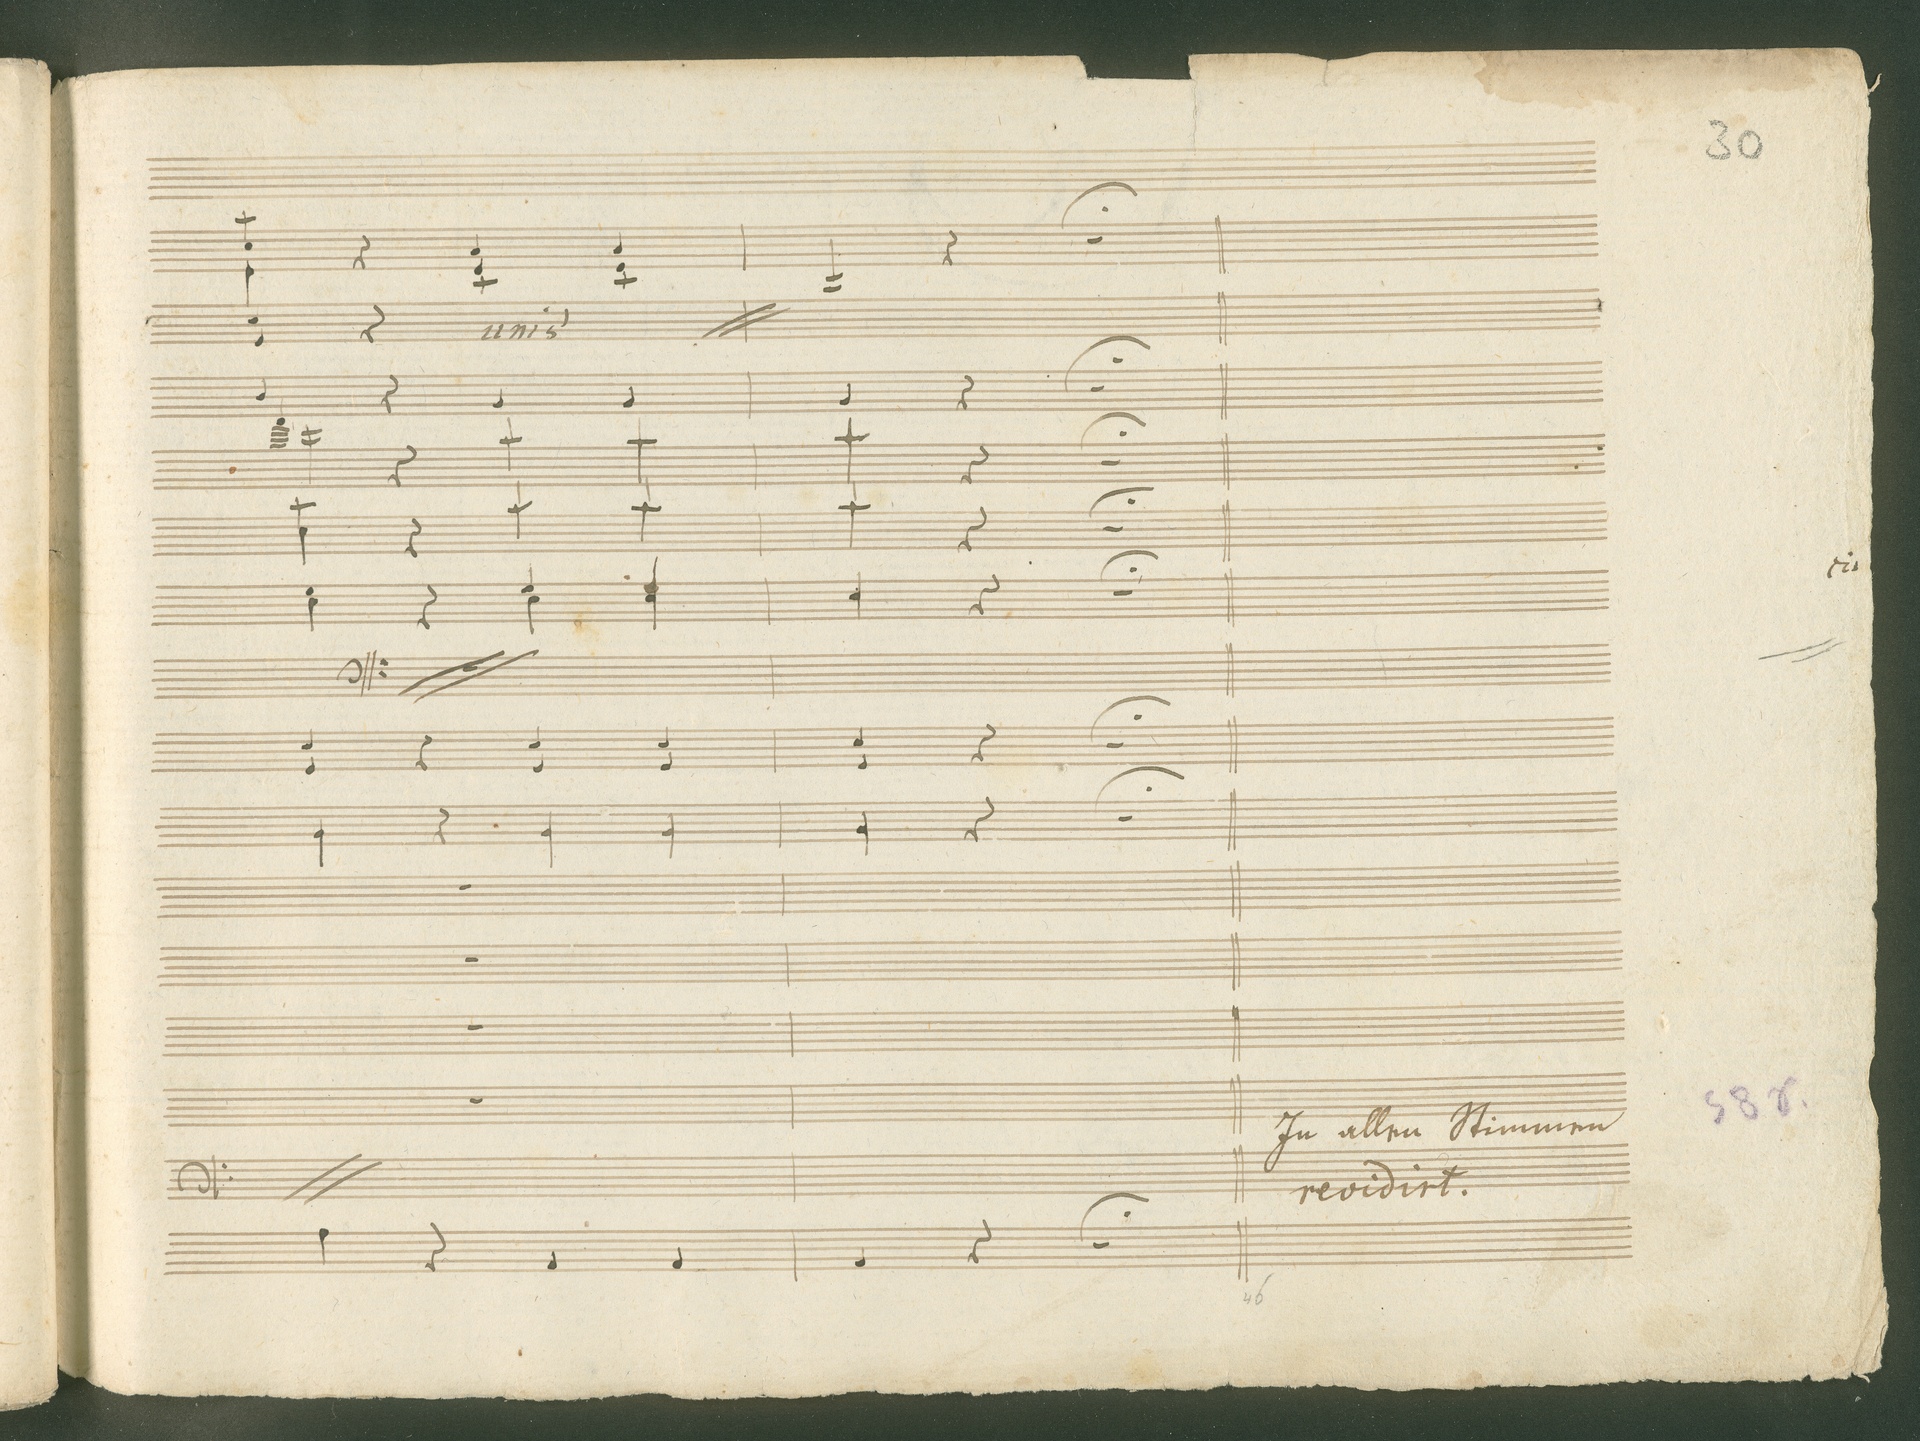 30
unis
In allen Stimmen
revidirt.
46